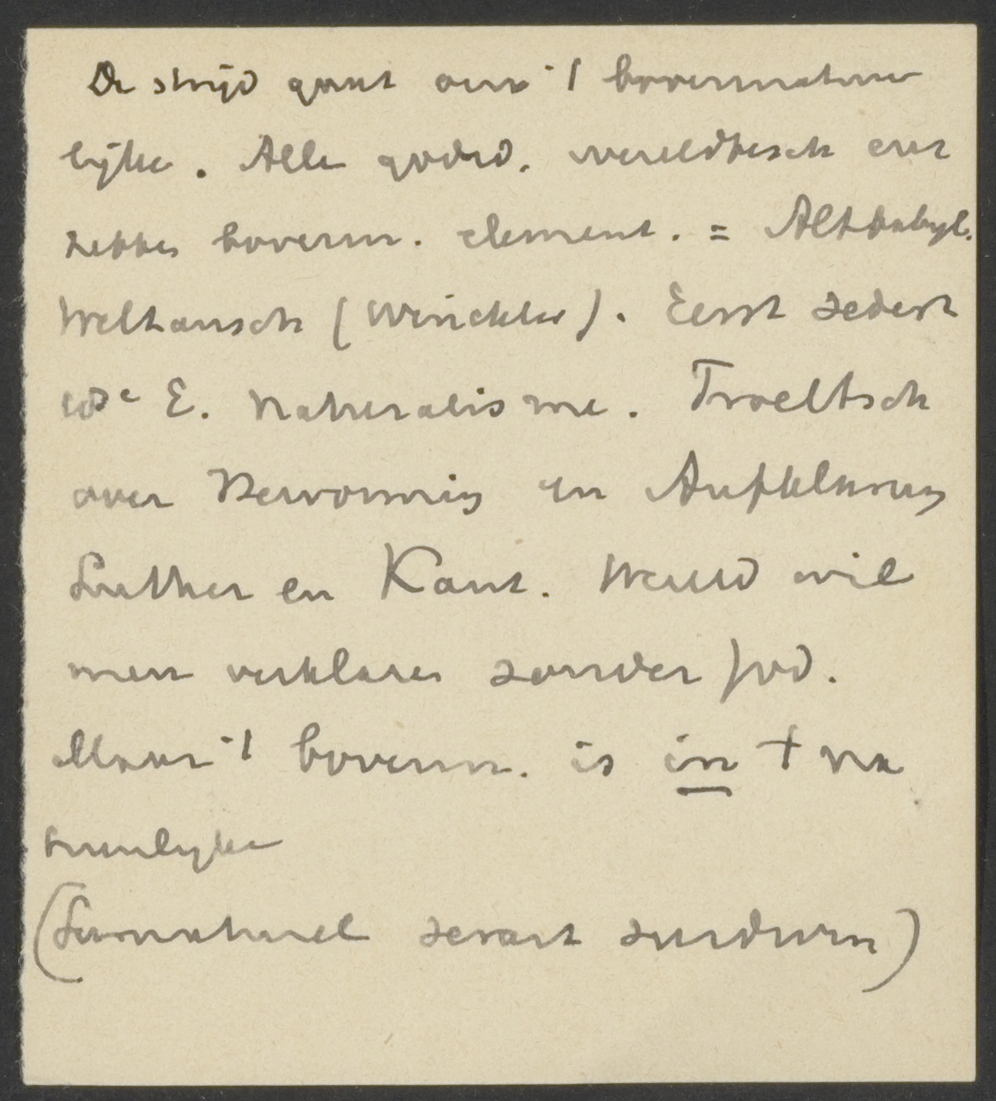 De strijd gaat over 't bovennatuur
lijke. Alle godsd. wereldbesch en
hebben bovenn. element. = Altbabyl.
Weltansch (Winckler). Eerst sedert
18e E. naturalisme. Troeltsch
over Hervorming en Aufklärung
Luther en Kant. Wereld wil
men verklaren zonder God.
Maar 't bovenn. is in 't na
tuurlijke
(Surnaturel